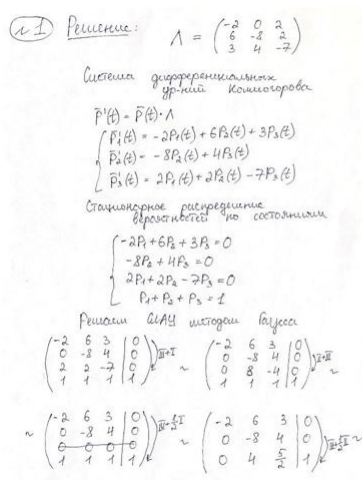 №1 Решение: Λ = (-2 0 2
6 -8 2
3 4 -7)
Система дифференциальных
ур-ний Колмогорова
p̄'(t) = p̄(t)·Λ
p̄₁'(t) = -2p₁(t) + 6p₂(t) + 3p₃(t)
p̄₂'(t) = -8p₂(t) + 4p₃(t)
p̄₃'(t) = 2p₁(t) + 2p₂(t) - 7p₃(t)
Стационарное распределение
вероятностей по состояниям
-2p₁ + 6p₂ + 3p₃ = 0
-8p₂ + 4p₃ = 0
2p₁ + 2p₂ - 7p₃ = 0
p₁ + p₂ + p₃ = 1
Решаем СЛАУ методом Гаусса
(-2 6 3 | 0) III+I (-2 6 3 | 0)
(0 -8 4 | 0) (0 -8 4 | 0) III+II
(2 2 -7 | 0) ~ (0 8 -4 | 0) ~
(1 1 1 | 1) (1 1 1 | 1)
(-2 6 3 | 0) (-2 6 3 | 0)
~ (0 -8 4 | 0) ~ (0 -8 4 | 0) ~
(0 0 0 | 0) (0 4 5/2 | 1)
(1 1 1 | 1)